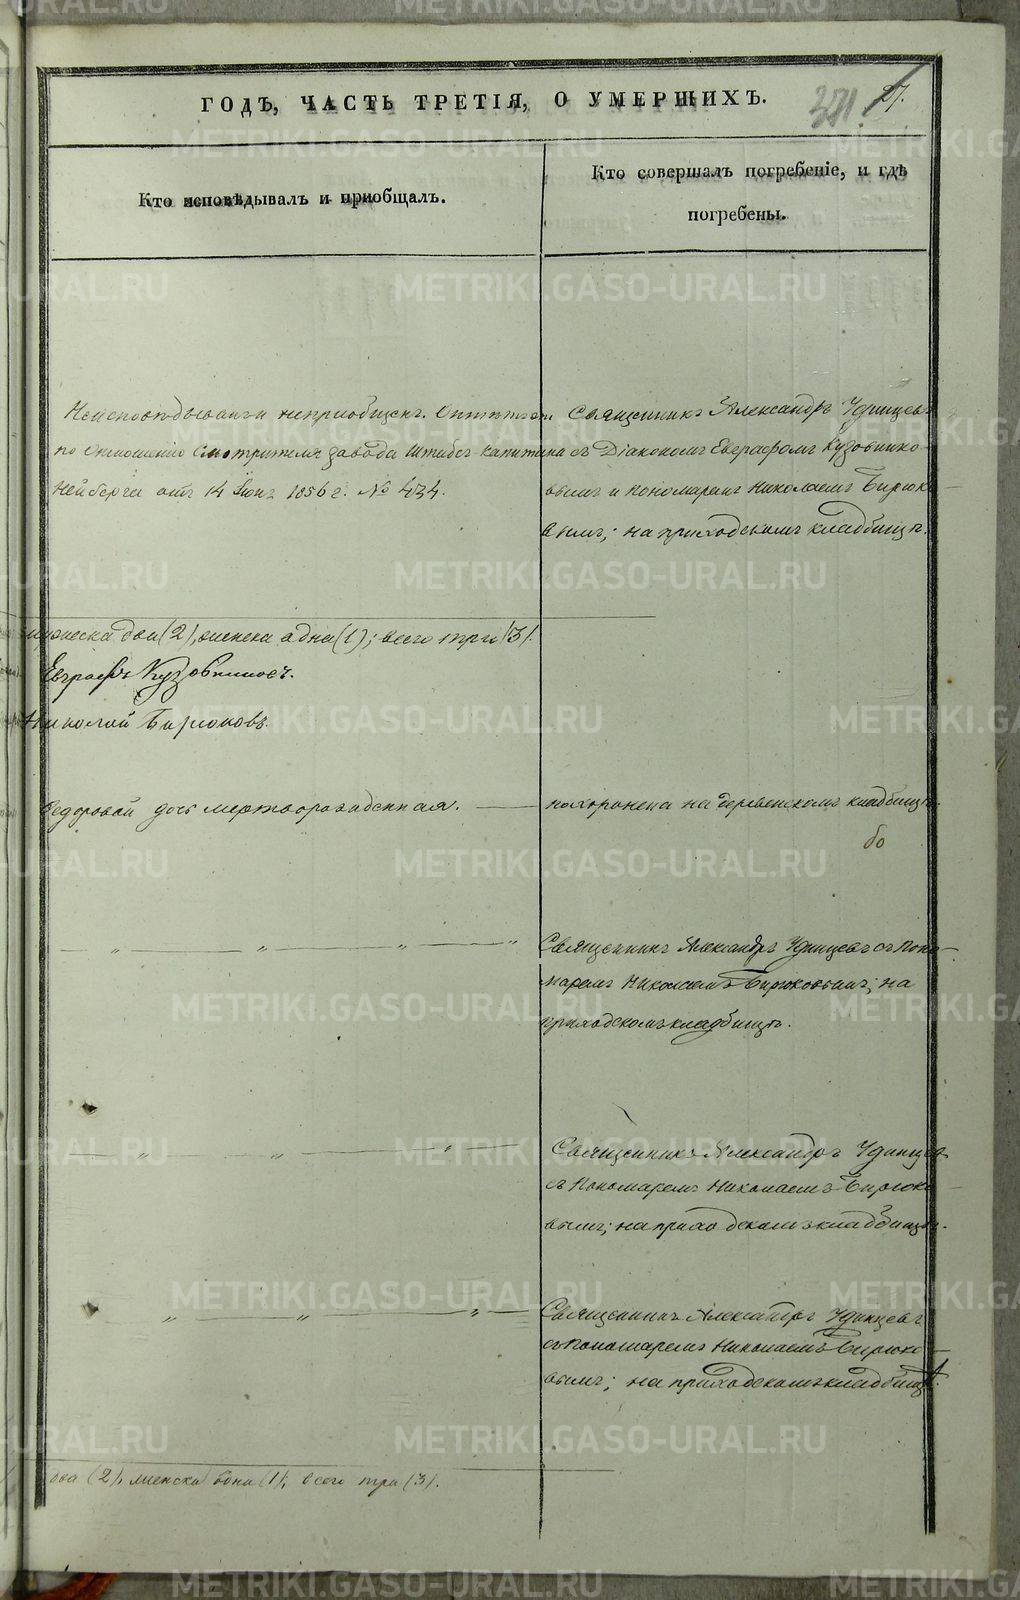 ГОДЪ, ЧАСТЬ ТРЕТІЯ, О УМЕРШИХЪ.
381.
Кто исповѣдывалъ и пріобщалъ.
Кто совершалъ погребеніе, и гдѣ
погребены.
Неисповѣдыванъ и непріобщенъ.
по отношенію Смотрителя завода Штабсъ-Капитана
Нейберга отъ 14 Іюня 1856 г. № 434.
Священникъ Александръ Удинцевъ
съ Діакономъ Евграфомъ Кузовнико-
вымъ и Пономаремъ Николаемъ Бирюко-
вымъ; на приходскомъ кладбищѣ.
мужеска два (2), женска одна (1); всего три (3).
Евграфъ Кузовниковъ.
Николай Бирюковъ.
Федоровой дочь мертворожденная.
похоронена на деревенскомъ кладбищѣ.
Священникъ Александръ Удинцевъ съ Поно-
маремъ Николаемъ Бирюковымъ; на
приходскомъ кладбищѣ.
Священникъ Александръ Удинцевъ
съ Пономаремъ Николаемъ Бирюко-
вымъ; на приходскомъ кладбищѣ.
Священникъ Александръ Удинцевъ
съ Пономаремъ Николаемъ Бирюко-
вымъ; на приходскомъ кладбищѣ.
два (2), женска одна (1), всего три (3).
METRIKI.GASO-URAL.RU